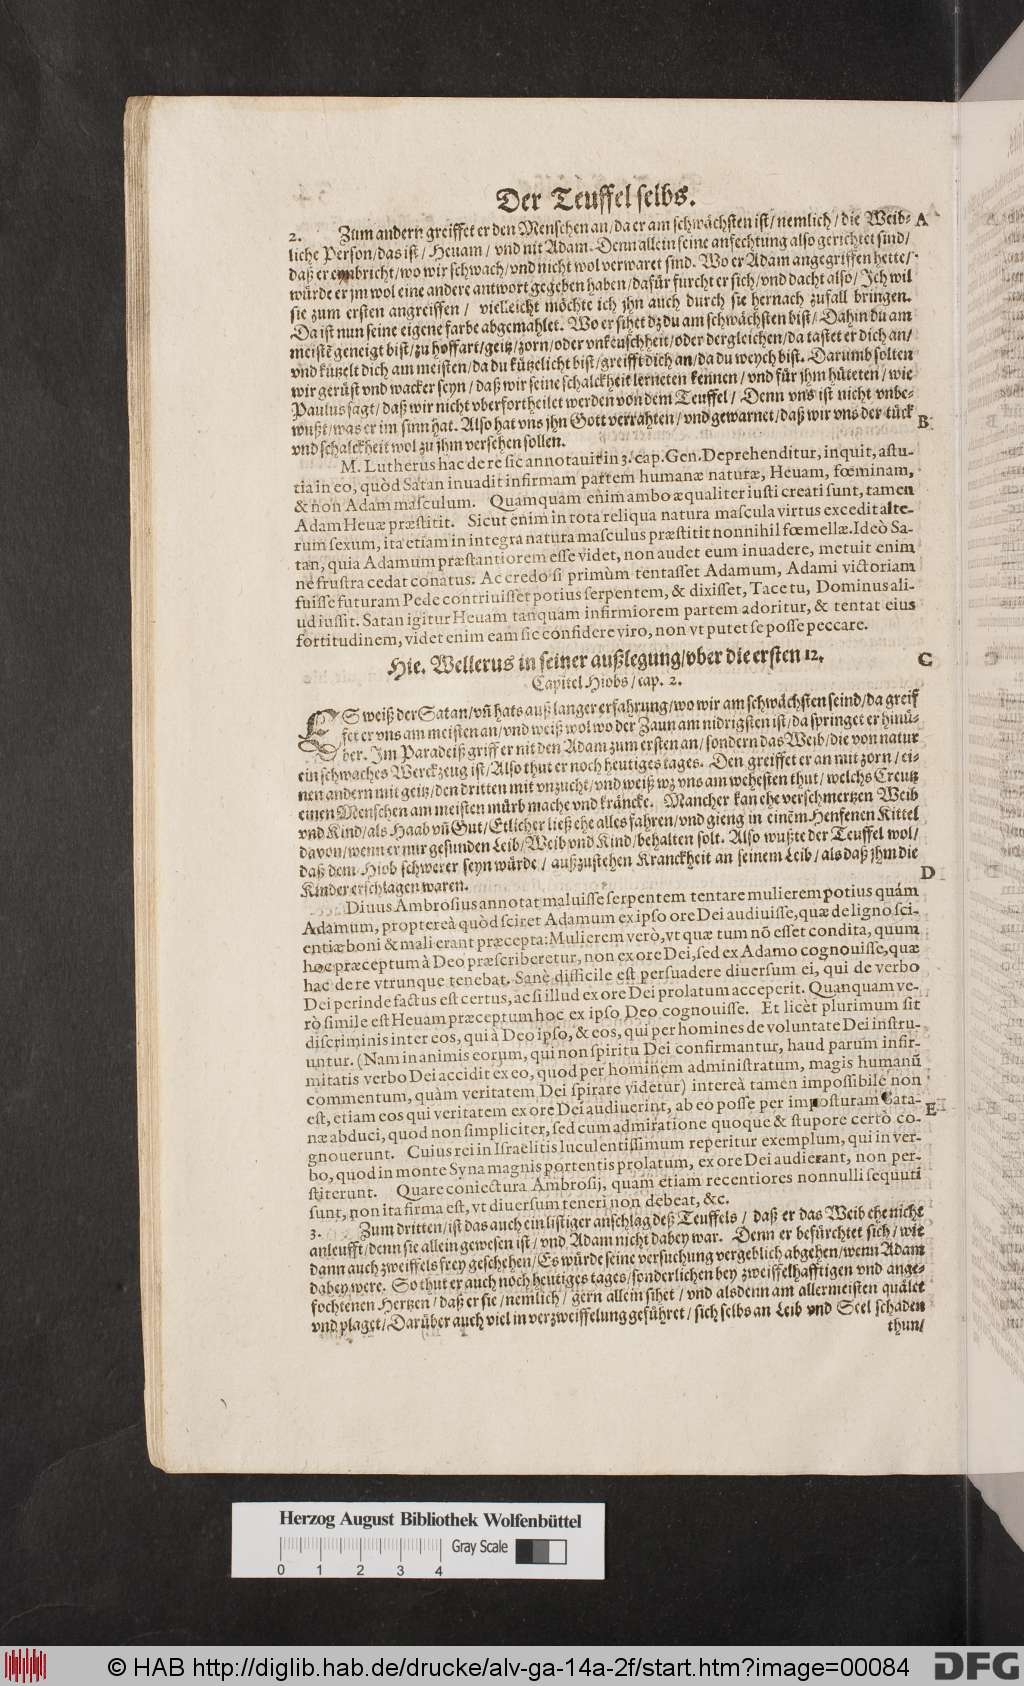 Der Teuffel selbs.
2. Zum andern greiffet er den Menschen an/da er am schwächsten ist/nemlich/die Weib- A
liche Person/das ist/Heuam/vnd nit Adam. Denn allein seine anfechtung also gerichtet sind/
daß er eynbricht/wo wir schwach/vnd nicht wol verwaret sind. Wo er Adam angegriffen hette/
würde er jm wol eine andere antwort gegeben haben/dafür furcht er sich/vnd dacht also/Ich wil
sie zum ersten angreiffen/ vielleicht möchte ich jhn auch durch sie hernach zufall bringen.
Da ist nun seine eigene farbe abgemahlet. Wo er sihet dz du am schwächsten bist/Dahin du am
meistē geneigt bist/zu hoffart/geitz/zorn/oder vnkeuschheit/oder dergleichen/da tastet er dich an/
vnd kützelt dich am meisten/da du kützelicht bist/greifft dich an/da du weych bist. Darumb solten
wir gerüst vnd wacker seyn/daß wir seine schalckheit lerneten kennen/vnd für jhm hüteten/wie
Paulus sagt/daß wir nicht vberfortheilet werden von dem Teuffel/Denn vns ist nicht vnbe-
wußt/was er im sinn hat. Also hat vns jhn Gott verrahten/vnd gewarnet/daß wir vns der tück B
vnd schalckheit wol zu jhm versehen sollen.
M. Lutherus hac de re sic annotauit in 3. cap. Gen. Deprehenditur, inquit, astu-
tia in eo, quòd Satan inuadit infirmam partem humanæ naturæ, Heuam, fœminam,
& non Adam masculum. Quamquam enim ambo æqualiter iusti creati sunt, tamen
Adam Heuæ præstitit. Sicut enim in tota reliqua natura mascula virtus excedit alte-
rum sexum, ita etiam in integra natura masculus præstitit nonnihil fœmellæ. Ideò Sa-
tan, quia Adamum præstantiorem esse videt, non audet eum inuadere, metuit enim
ne frustra cedat conatus. Ac credo si primùm tentasset Adamum, Adami victoriam
fuisse futuram Pede contriuisset potius serpentem, & dixisset, Tace tu, Dominus ali-
ud iussit. Satan igitur Heuam tanquam infirmiorem partem adoritur, & tentat eius
fortitudinem, videt enim eam sic confidere viro, non vt putet se posse peccare.
Hie. Wellerus in seiner außlegung/vber die ersten 12. C
Capitel Hiobs/cap. 2.
ES weiß der Satan/vn̄ hats auß langer erfahrung/wo wir am schwächsten seind/da greif
fet er vns am meisten an/vnd weiß wol wo der Zaun am nidrigsten ist/da springet er hinü-
ber. Im Paradeiß griff er nit den Adam zum ersten an/sondern das Weib/die von natur
ein schwaches Werckzeug ist/Also thut er noch heutiges tages. Den greiffet er an mit zorn/ei-
nen andern mit geitz/den dritten mit vnzucht/vnd weiß wz vns am wehesten thut/welchs Creutz
einen Menschen am meisten mürb mache vnd kräncke. Mancher kan ehe verschmertzen Weib
vnd Kind/als Haab vn̄ Gut/Etlicher ließ ehe alles fahren/vnd gieng in einēm Henfenen Kittel
davon/wenn er nur gesunden Leib/Weib vnd Kind/behalten solt. Also wußte der Teuffel wol/
daß dem Hiob schwerer seyn würde/außzustehen Kranckheit an seinem Leib/als daß jhm die D
Kinder erschlagen waren.
Diuus Ambrosius annotat maluisse serpentem tentare mulierem potius quám
Adamum, proptereà quòd sciret Adamum ex ipso ore Dei audiuisse, quæ de ligno sci-
entiæ boni & mali erant præcepta: Mulierem verò, vt quæ tum nō esset condita, quum
hoc præceptum à Deo præscriberetur, non ex ore Dei, sed ex Adamo cognouisse, quæ
hac de re vtrunque tenebat. Sanè difficile est persuadere diuersum ei, qui de verbo
Dei perinde factus est certus, ac si illud ex ore Dei prolatum acceperit. Quanquam ve-
rò simile est Heuam præceptum hoc ex ipso Deo cognouisse. Et licèt plurimum sit
discriminis inter eos, qui à Deo ipso, & eos, qui per homines de voluntate Dei instru-
untur. (Nam in animis eorum, qui non spiritu Dei confirmantur, haud parum infir-
mitatis verbo Dei accidit ex eo, quod per hominem administratum, magis humanū
commentum, quàm veritatem Dei spirare videtur) intereà tamen impossibile non
est, etiam eos qui veritatem ex ore Dei audiuerint, ab eo posse per imposturam Sata- E
næ abduci, quod non simpliciter, sed cum admiratione quoque & stupore certò co-
gnouerunt. Cuius rei in Israëlitis luculentissimum reperitur exemplum, qui in ver-
bo, quod in monte Syna magnis portentis prolatum, ex ore Dei audierant, non per-
stiterunt. Quare coniectura Ambrosij, quam etiam recentiores nonnulli sequuti
sunt, non ita firma est, vt diuersum teneri non debeat, &c.
3. Zum dritten/ist das auch ein listiger anschlag deß Teuffels/ daß er das Weib ehe nicht
anleufft/denn sie allein gewesen ist/vnd Adam nicht dabey war. Denn er befürchtet sich/wie
dann auch zweiffels frey geschehen/Es würde seine versuchung vergeblich abgehen/wenn Adam
dabey were. So thut er auch noch heutiges tages/sonderlichen bey zweiffelhafftigen vnd ange-
fochtenen Hertzen/daß er sie/nemlich/gern allein sihet/vnd alsdenn am allermeisten quälet
vnd plaget/Darüber auch viel in verzweiffelung geführet/sich selbs an Leib vnd Seel schaden
thun/
Herzog August Bibliothek Wolfenbüttel
Gray Scale
0 1 2 3 4
© HAB http://diglib.hab.de/drucke/alv-ga-14a-2f/start.htm?image=00084
DFG